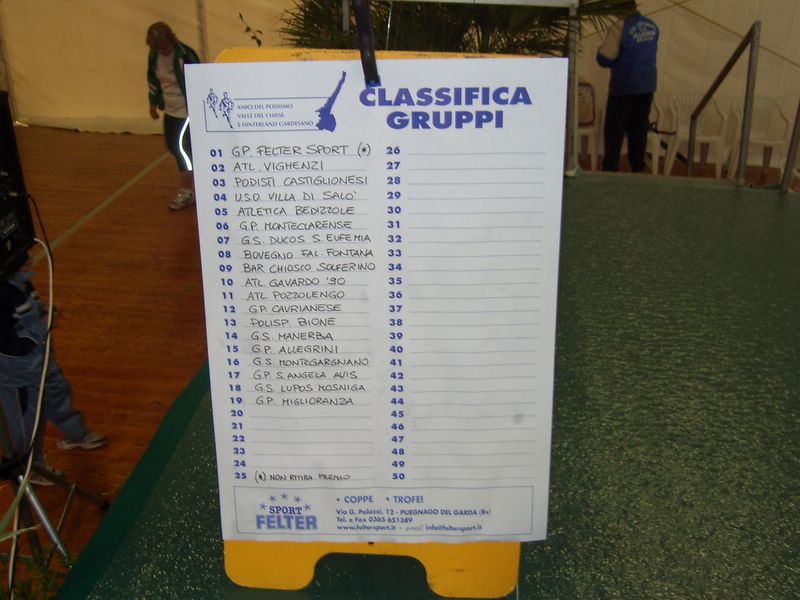 AMICI DEL PODISMO
VALLE DEL CHIESE
E HINTERLAND GARDESANO
CLASSIFICA
GRUPPI
01 G.P. FELTER SPORT (*)
02 ATL. VIGHENZI
03 PODISTI CASTIGLIONESI
04 U.S.O. VILLA DI SALO'
05 ATLETICA BEDIZZOLE
06 G.P. MONTECLARENSE
07 G.S. DUCOS S. EUFEMIA
08 BOVEGNO FAL. FONTANA
09 BAR CHIOSCO SOLFERINO
10 ATL. GAVARDO '90
11 ATL. POZZOLENGO
12 G.P. CAVRIANESE
13 POLISP. BIONE
14 G.S. MANERBA
15 G.P. ALLEGRINI
16 G.S. MONTEGARGNANO
17 G.P. S. ANGELA AVIS
18 G.S. LUPOS MOSNIGA
19 G.P. MIGLIORANZA
20
21
22
23
24
25 (*) NON RITIRA PREMIO
26
27
28
29
30
31
32
33
34
35
36
37
38
39
40
41
42
43
44
45
46
47
48
49
50
SPORT
FELTER
• COPPE • TROFEI
Via G. Palazzi, 12 - PUEGNAGO DEL GARDA (Bs)
Tel. e Fax 0365 651389
www.feltersport.it - e-mail info@feltersport.it